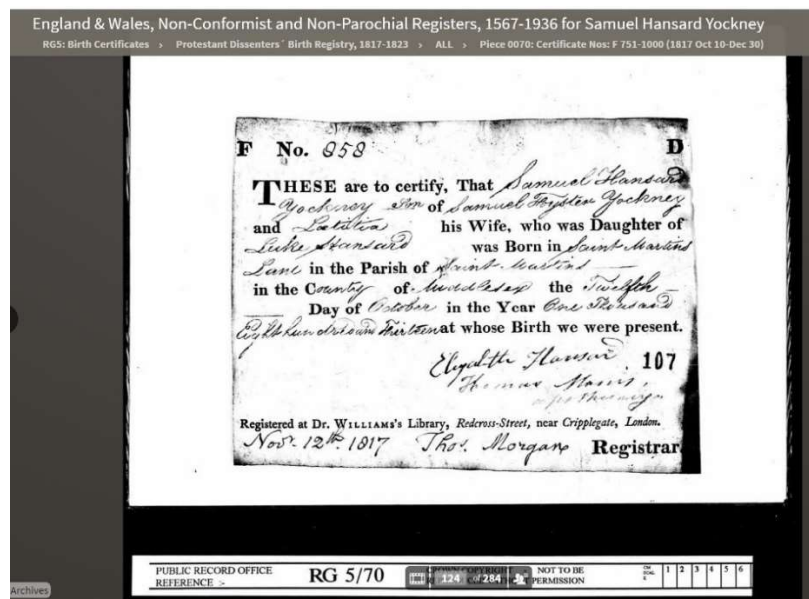 England & Wales, Non-Conformist and Non-Parochial Registers, 1567-1936 for Samuel Hansard Yockney
RG5: Birth Certificates › Protestant Dissenters´ Birth Registry, 1817-1823 › ALL › Piece 0070: Certificate Nos: F 751-1000 (1817 Oct 10-Dec 30)
F No. 858 D
THESE are to certify, That Samuel Hansard
Yockney Son of Samuel Yockney
and Lætitia his Wife, who was Daughter of
Luke Hansard was Born in Saint Martins
Lane in the Parish of Saint Martins
in the County of Middlesex the Twelfth
Day of October in the Year One Thousand
Eight hundred and Thirteen at whose Birth we were present.
Elizabeth Hansard 107
Thomas
Registered at Dr. WILLIAMS's Library, Redcross-Street, near Cripplegate, London.
Novr. 12th. 1817 Thos. Morgan Registrar
PUBLIC RECORD OFFICE
REFERENCE :-
RG 5/70
124 of 284
NOT TO BE
PERMISSION
1 2 3 4 5 6
Archives